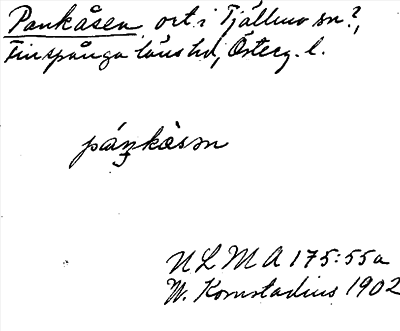 Pankåsen, ort i Tjällmo sn?,
Finspånga läns hd, Österg. l.
páŋkàsən
ULMA 175:55a
W. Komstadius 1902